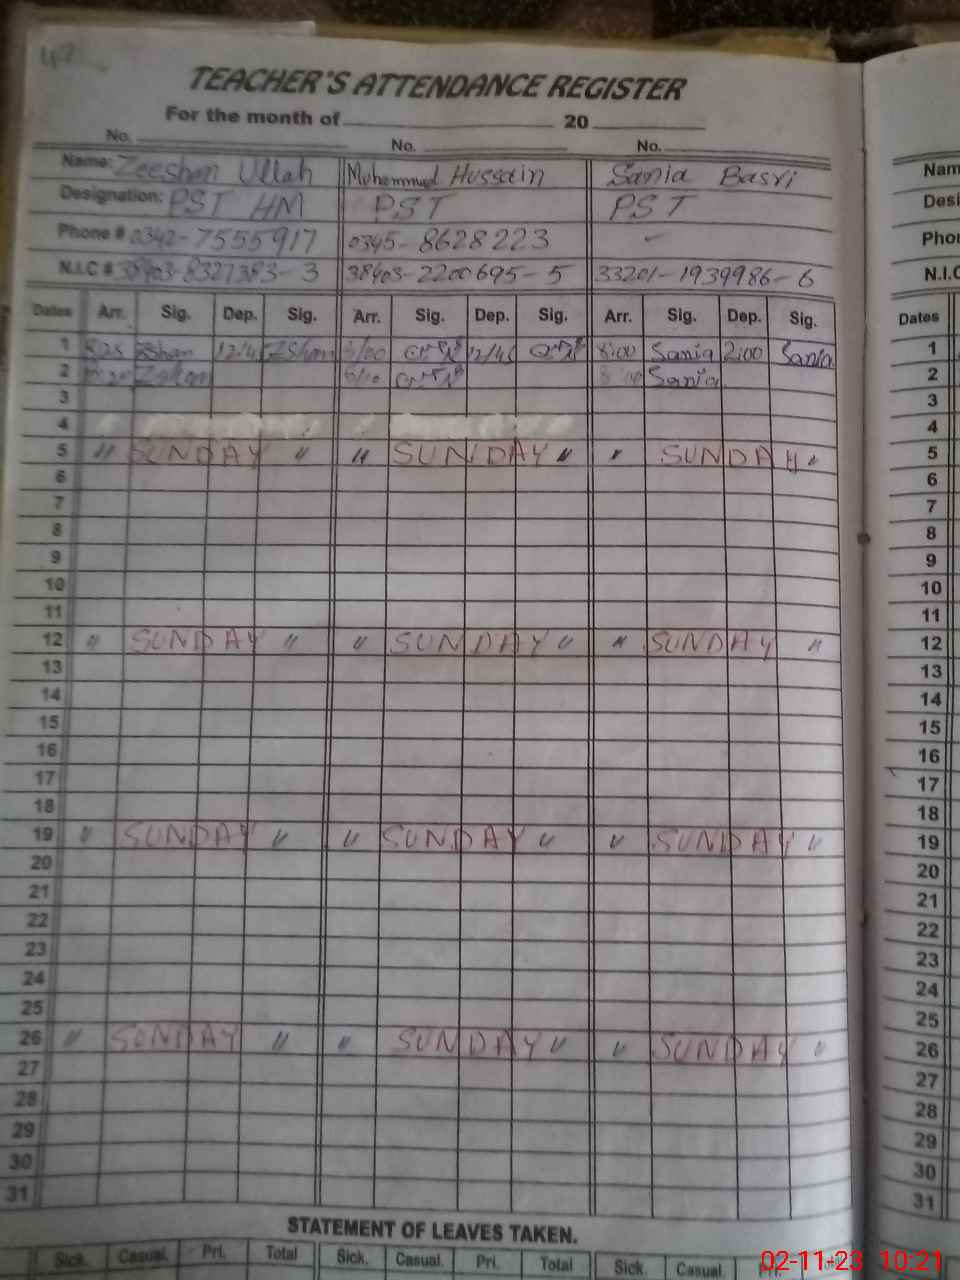 TEACHER'S ATTENDANCE REGISTER
For the month of 20
No. No. No.
Name: Zeeshan Ullah Muhammad Hussain Sania Basri
Designation: PST HM PST PST
Phone # 0342-7555917 0345-8628223 -
N.I.C # 38403-8327383-3 38403-2200695-5 33201-1939986-6
Dates Arr. Sig. Dep. Sig. Arr. Sig. Dep. Sig. Arr. Sig. Dep. Sig.
1 Zshan 12/45 Zshan 12/45 8:00 Sania 2:00 Sania 1
2 Zshan Sania 2
3 3
4 4
5 " SUNDAY " " SUNDAY " " SUNDAY " 5
6 6
7 7
8 8
9 9
10 10
11 11
12 " SUNDAY " " SUNDAY " " SUNDAY " 12
13 13
14 14
15 15
16 16
17 17
18 18
19 " SUNDAY " " SUNDAY " " SUNDAY " 19
20 20
21 21
22 22
23 23
24 24
25 25
26 " SUNDAY " " SUNDAY " " SUNDAY " 26
27 27
28 28
29 29
30 30
31 31
STATEMENT OF LEAVES TAKEN.
Sick. Casual. Pri. Total Sick. Casual. Pri. Total Sick. Casual. Pri.
Nam
Desi
Phor
N.I.C
Dates
02-11-23 10:21